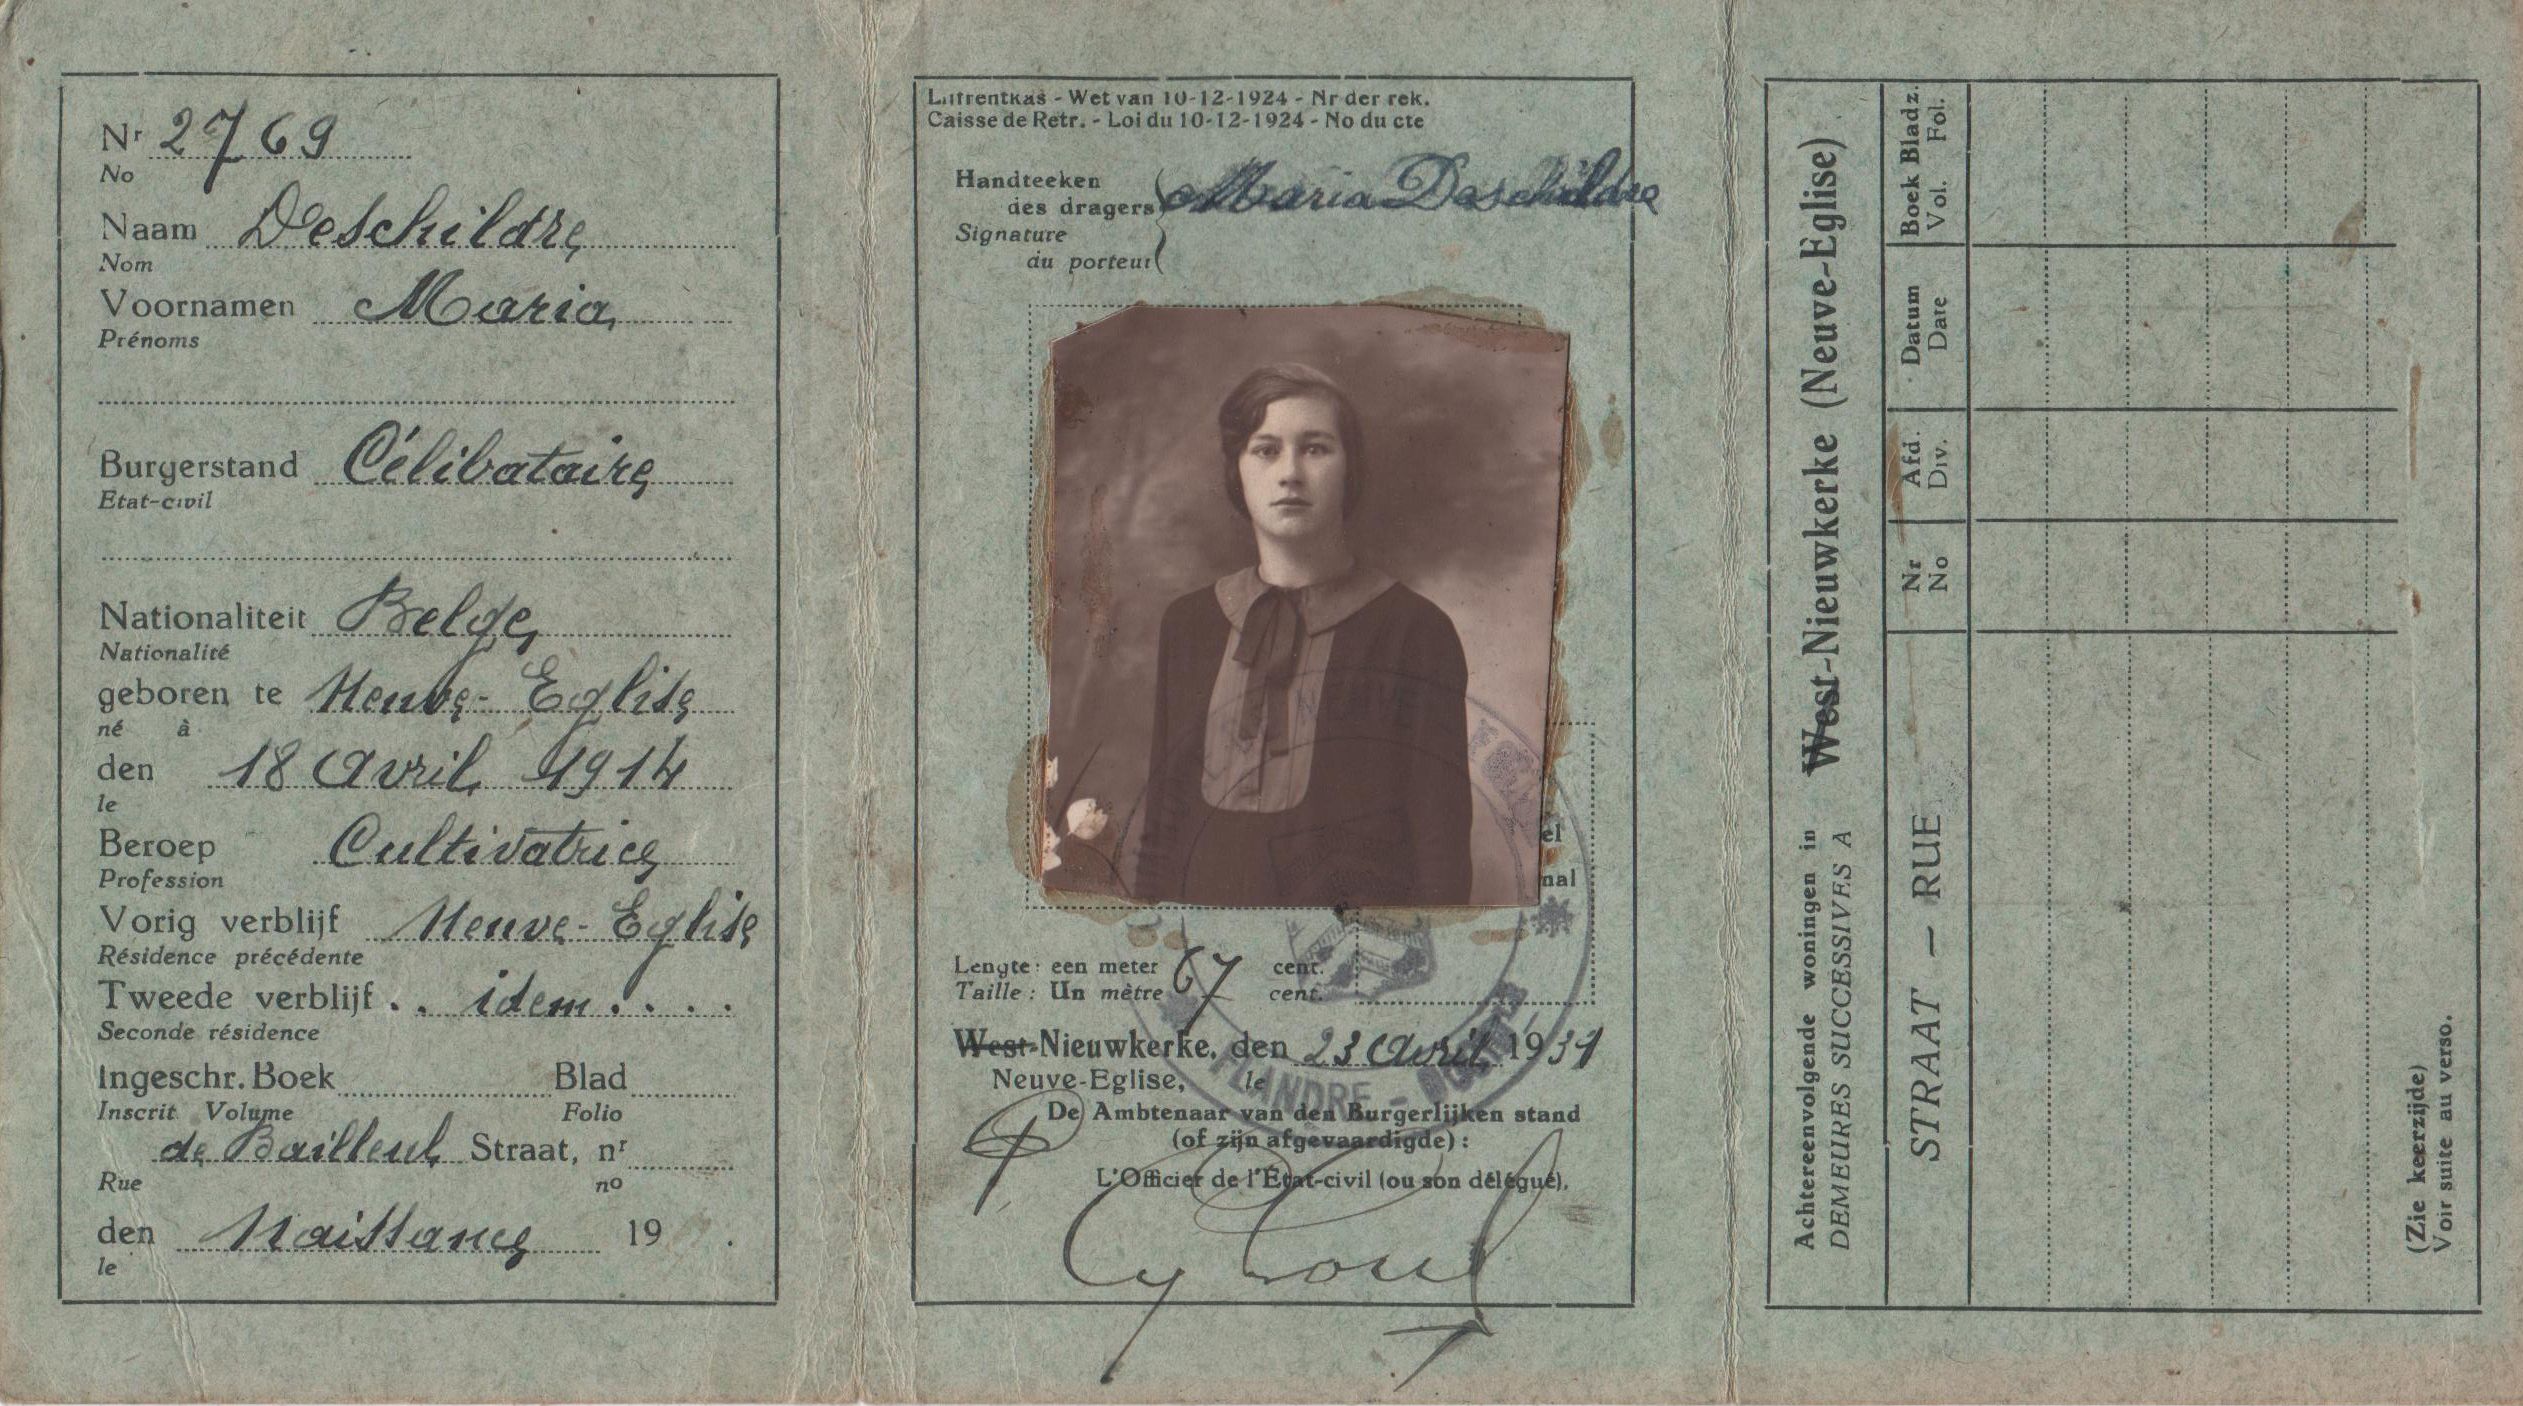 Nr 2769
No
Naam Deschildre
Nom
Voornamen Maria
Prénoms
Burgerstand Célibataire
Etat-civil
Nationaliteit Belge
Nationalité
geboren te Neuve-Eglise
né à
den 18 Avril 1914
le
Beroep Cultivatrice
Profession
Vorig verblijf Neuve-Eglise
Résidence précédente
Tweede verblijf . . idem . . . .
Seconde résidence
Ingeschr. Boek Blad
Inscrit Volume Folio
de Bailleul Straat, nr
Rue no
den Naissance 19 .
le
Lijfrentkas - Wet van 10-12-1924 - Nr der rek.
Caisse de Retr. - Loi du 10-12-1924 - No du cte
Handteeken
des dragers Maria Deschildre
Signature
du porteur
el
nal
Lengte: een meter 67 cent.
Taille: Un mètre cent.
West-Nieuwkerke, den 23 Avril 1931
Neuve-Eglise, le
De Ambtenaar van den Burgerlijken stand
(of zijn afgevaardigde):
L'Officier de l'Etat-civil (ou son délégué),
FLANDRE -
Achtereenvolgende woningen in West-Nieuwkerke (Neuve-Eglise)
DEMEURES SUCCESSIVES A
STRAAT - RUE
Nr
No
Afd.
Div.
Datum
Date
Boek Bladz.
Vol. Fol.
(Zie keerzijde)
Voir suite au verso.